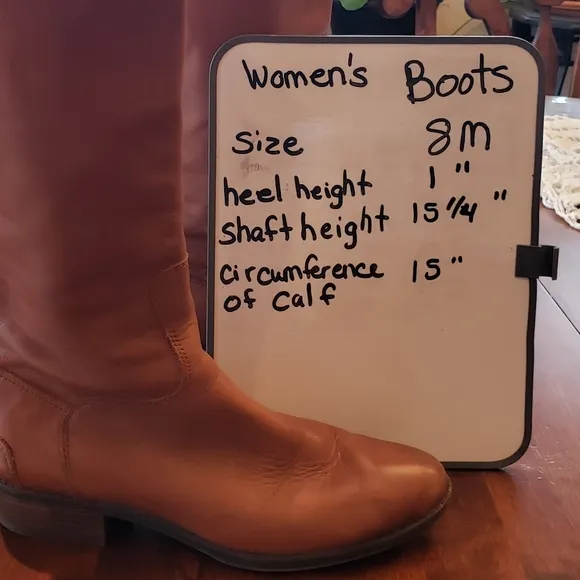 Women's Boots
Size 8M
heel height 1"
shaft height 15 1/4"
circumference 15"
of Calf